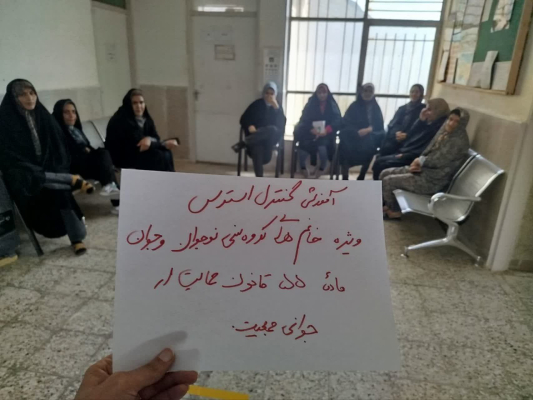 آموزش کنترل استرس
ویژه خانم های گروه سنی نوجوان و جوان
مادهٔ ۵۵ قانون حمایت از
جوانی جمعیت.